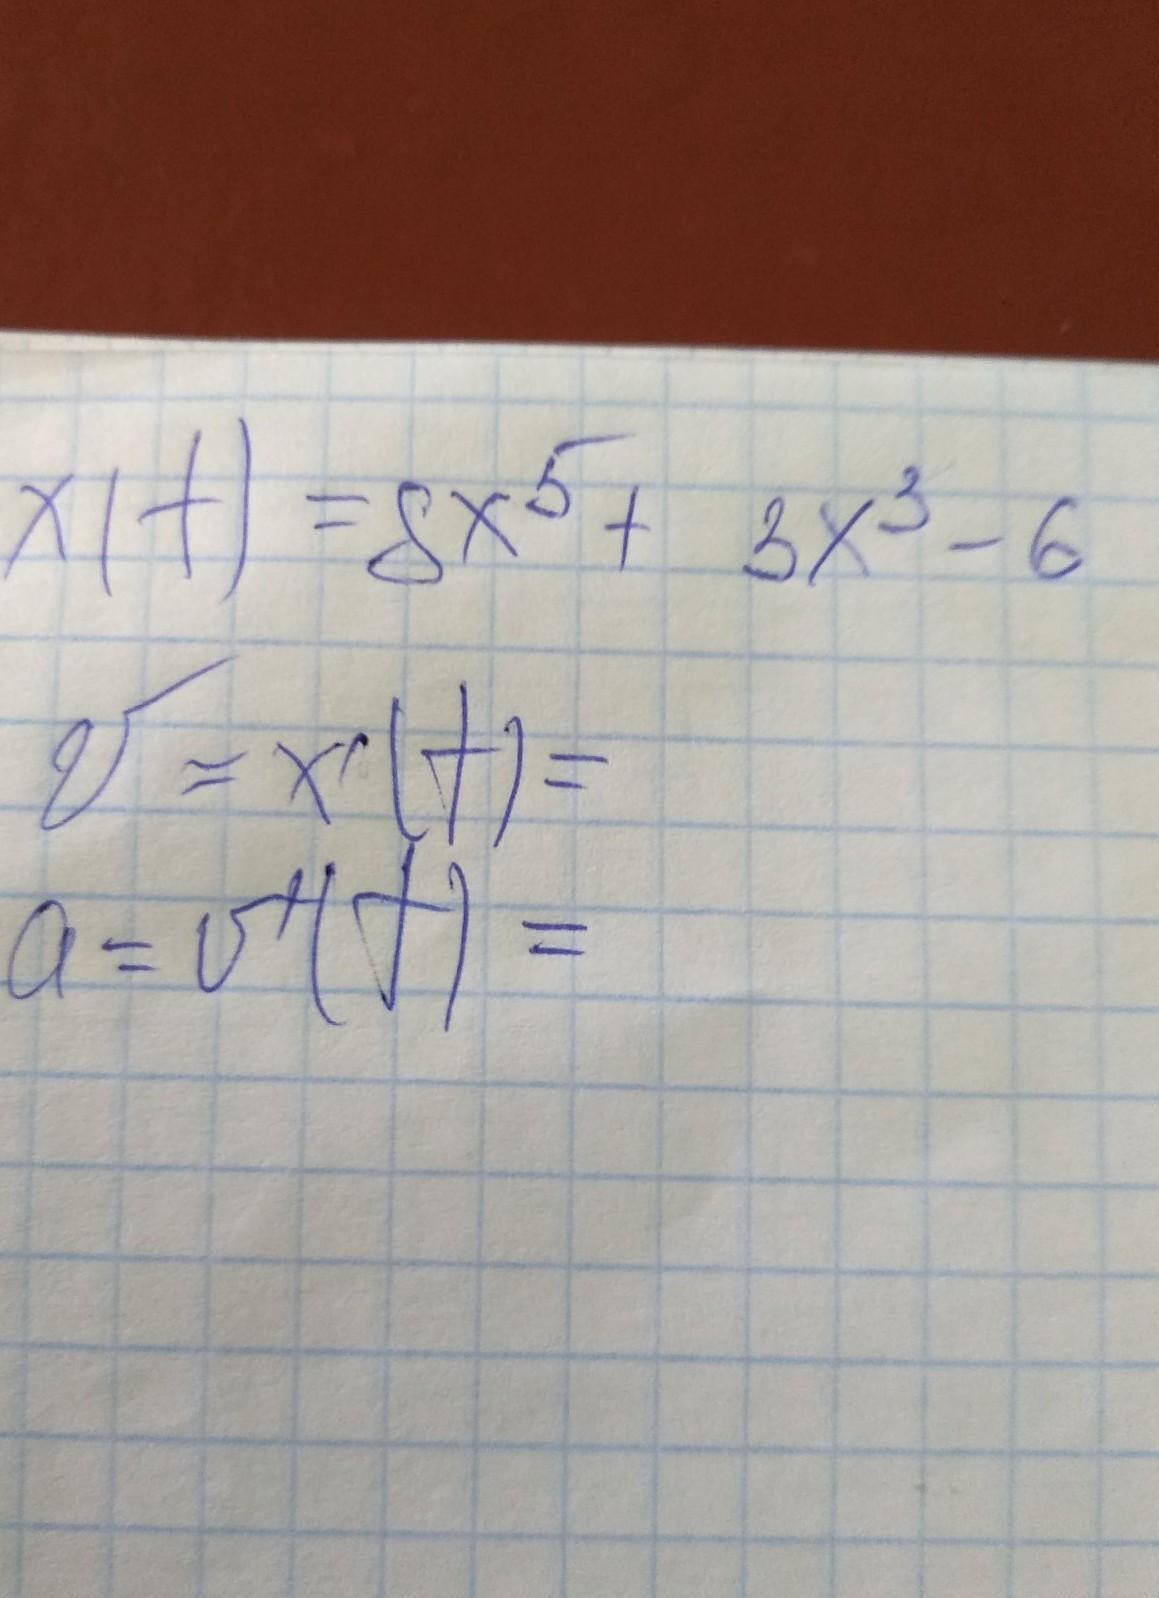 x(t) = 8x⁵ + 3x³ - 6
v = x'(t) =
a = v'(t) =